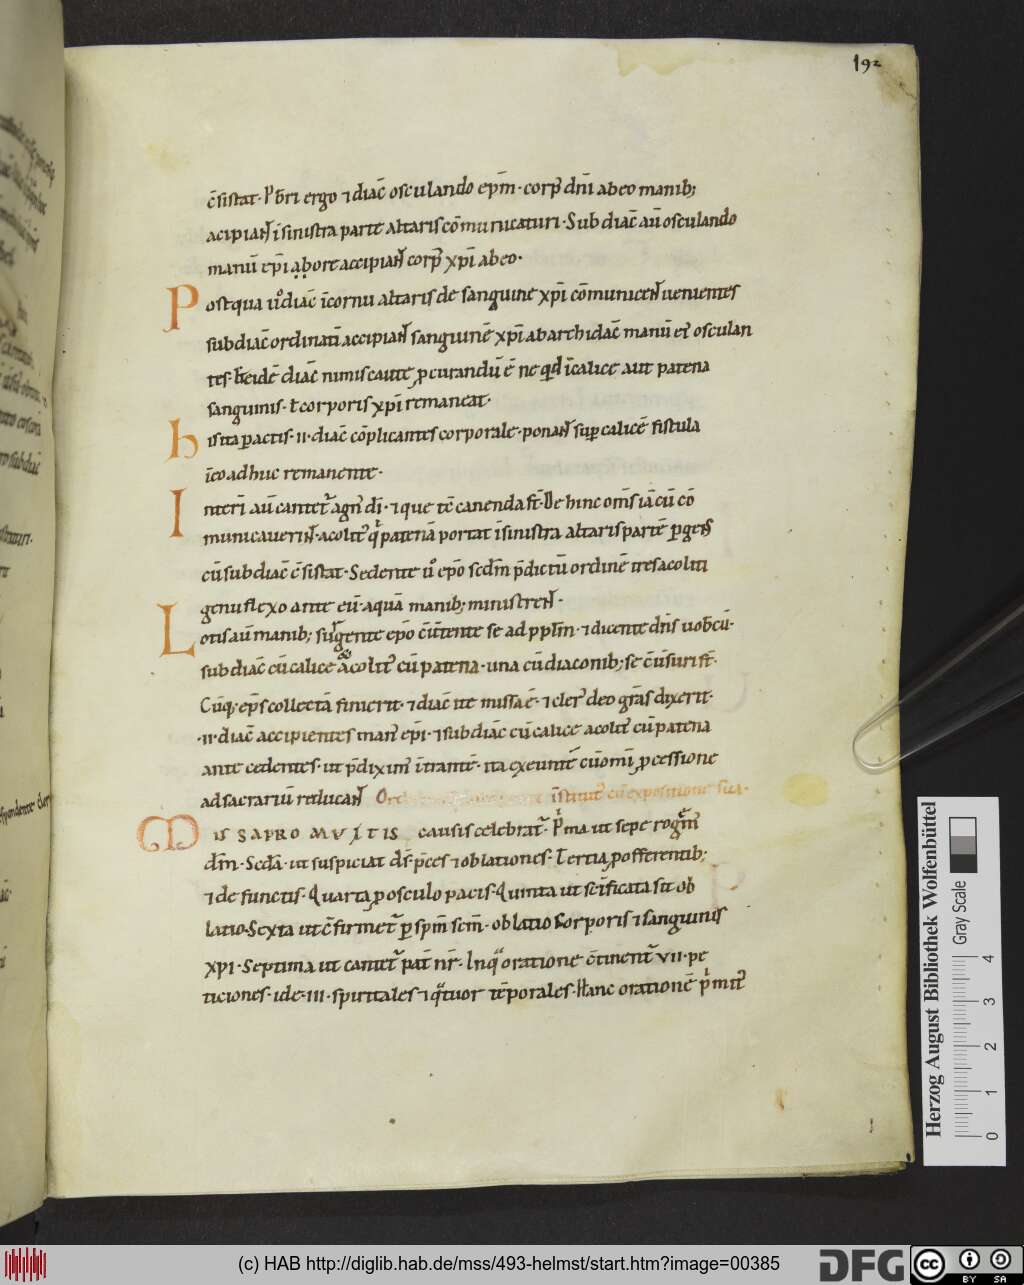 192
c̄sistat· P̄br̄i ergo ⁊ diac̄ osculando ep̄m· corp̄ dn̄i ab eo manib;
acipian̄t ī sinistra parte altaris cōmunicaturi· Subdiac̄ aū osculando
manū ep̄i ab ore accipian̄t corp̄ xp̄i ab eo·
Postqua ū diac̄ ī cornu altaris de sanguine xp̄i cōmunicen̄t uenientes
subdiac̄ ordinati accipian̄t sanguinē xp̄i ab archidiac̄ manū ei osculan
tes· diac̄ nimis caute ꝓcurandū ē ne qd ī calice aut patena
sanguinis· ł corporis xp̄i remaneat·
his ita ꝑactis· ii· diac̄ cōplicantes corporale· ponan̄t suꝑ calicē fistula
īeo adhuc remanente·
Interī aū cantet̄ agn̄ dī· ⁊ que tē canenda st̄· De hinc om̄s iā cū cō
municauerin̄t· acolit qͥ patenā portat ī sinistra altaris partē ꝑgen̄s
cū subdiac̄ c̄sistat· Sedente ū ep̄o scd̄m p̄dictū ordinē tres acoliti
genu flexo ante eū· aquā manib; ministren̄t·
Lotis aū manib; surgente ep̄o c̄ūtente se ad ppl̄m· ⁊ dicente dn̄s uob̄cū·
subdiac̄ cū calice acolit cū patena· una cū diaconib; se c̄ūsuri st̄·
Cūq; ep̄s collectā finierit· ⁊ diac̄ ite missa ē· ⁊ cler deo gr̄as dixerit·
·ii· diac̄ accipientes man ep̄i· ⁊ subdiac̄ cū calice acolit cū patena
ante cedentes· ut p̄dixim ītrantē· ita exeuntē cū om̄i ꝓcessione
ad sacrariū reducan̄t īstitut cū expositione sua·
MISSA PRO MULTIS causis celebrat̄· Pͥma ut sepe rogem
dm̄· Scd̄a· ut suspiciat ds̄ p̄ces ⁊ oblationes· Tertia ꝓ offerentib;
⁊ defunctis· Quarta ꝓ osculo pacis· Quinta ut sc̄ificata sit ob
latio· Sexta ut c̄firmet̄ ꝑ spm̄ scm̄· oblatio corporis ⁊ sanguinis
XPI· Septima ut cantet̄ pat̄ nr̄· In qͣ oratione c̄tinent̄ vii· pe
ticiones· id e· iii· spiritales ⁊ qͣtuor tēporales· Hanc orationē pͥmit
Herzog August Bibliothek Wolfenbüttel
Gray Scale
0 1 2 3 4
(c) HAB http://diglib.hab.de/mss/493-helmst/start.htm?image=00385
DFG
cc BY SA